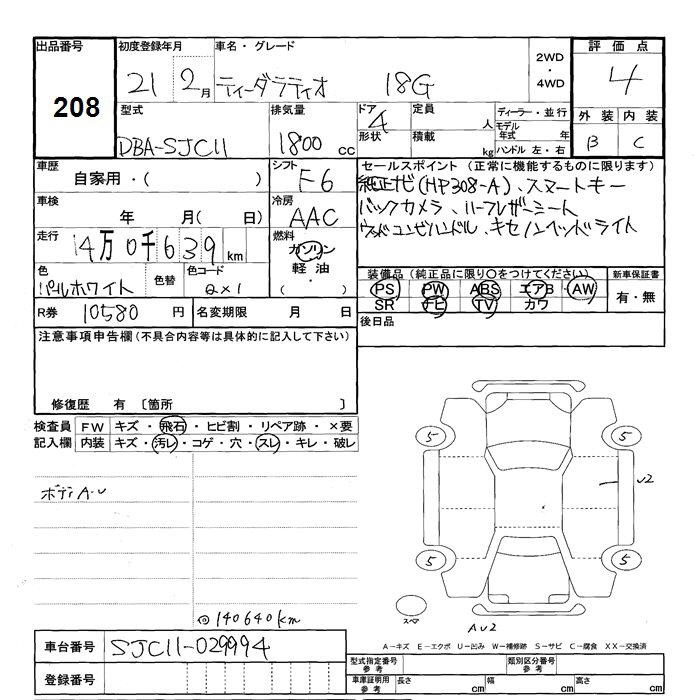 出品番号
208
初度登録年月
21 2月
車名・グレード
ティーダラティオ 18G
2WD
・
4WD
評価点
4
外装 内装
B C
型式
DBA-SJC11
排気量
1800 cc
ドア
4
形状
定員
人
積載
kg
ディーラー・並行
モデル年式 年
ハンドル 左・右
車歴
自家用・( )
シフト
F6
車検
年 月( 日)
冷房
AAC
走行
14万0千639km
燃料
ガソリン
軽油
・
色
パールホワイト
色替
色コード
QX1
R券 10580 円
名変期限 月 日
セールスポイント(正常に機能するものに限ります)
純正ナビ(HP308-A)、スマートキー
バックカメラ、ハーフレザーシート
ウッドコンビハンドル、キセノンヘッドライト
装備品(純正品に限り〇をつけてください)
PS PW ABS エアB ・AW
SR ナビ TV カワ
新車保証書
有・無
後日品
注意事項申告欄(不具合内容等は具体的に記入して下さい)
修復歴 有 〔箇所 〕
検査員
記入欄
FW キズ・飛石・ヒビ割・リペア跡・×要
内装 キズ・汚レ・コゲ・穴・スレ・キレ・破レ
ボディA・U
@140640km
5 5
U2
5 5
スペア
AU2
A−キズ E−エクボ U−凹み W−補修跡 S−サビ C−腐食 XX−交換済
車台番号 SJC11-029994
登録番号
型式指定番号
参考
類別区分番号
参考
車庫証明用
参考
長さ cm 幅 cm 高さ cm